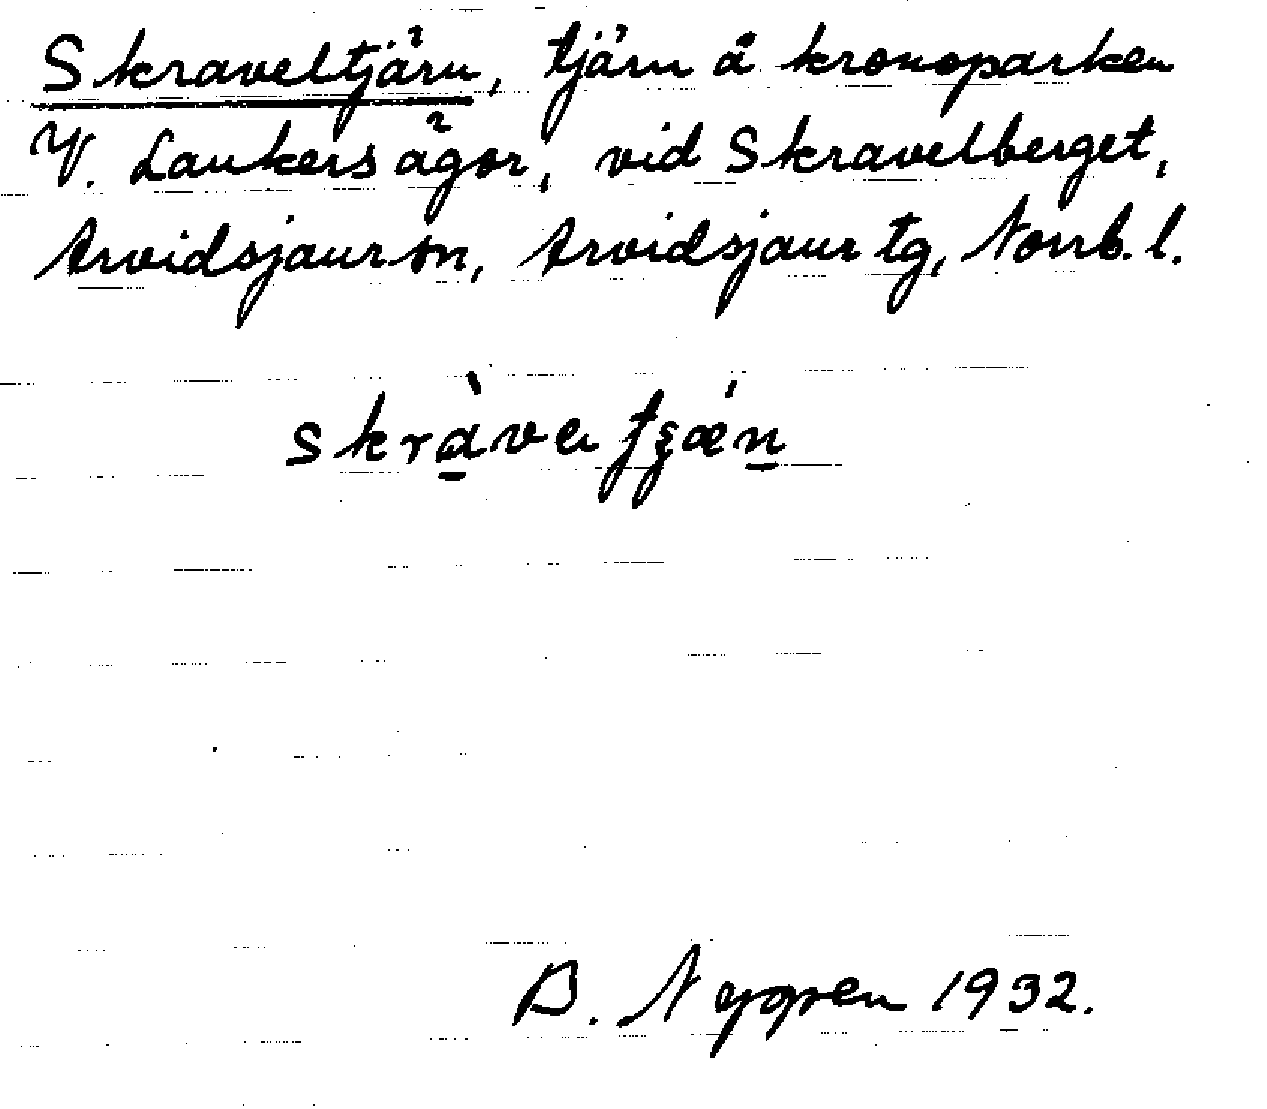 Skraveltjärn, tjärn å kronoparken
V. Laukers ägor, vid Skravelberget,
Arvidsjaur sn, Arvidsjaur tg, Norrb. l.
B. Nygren 1932.